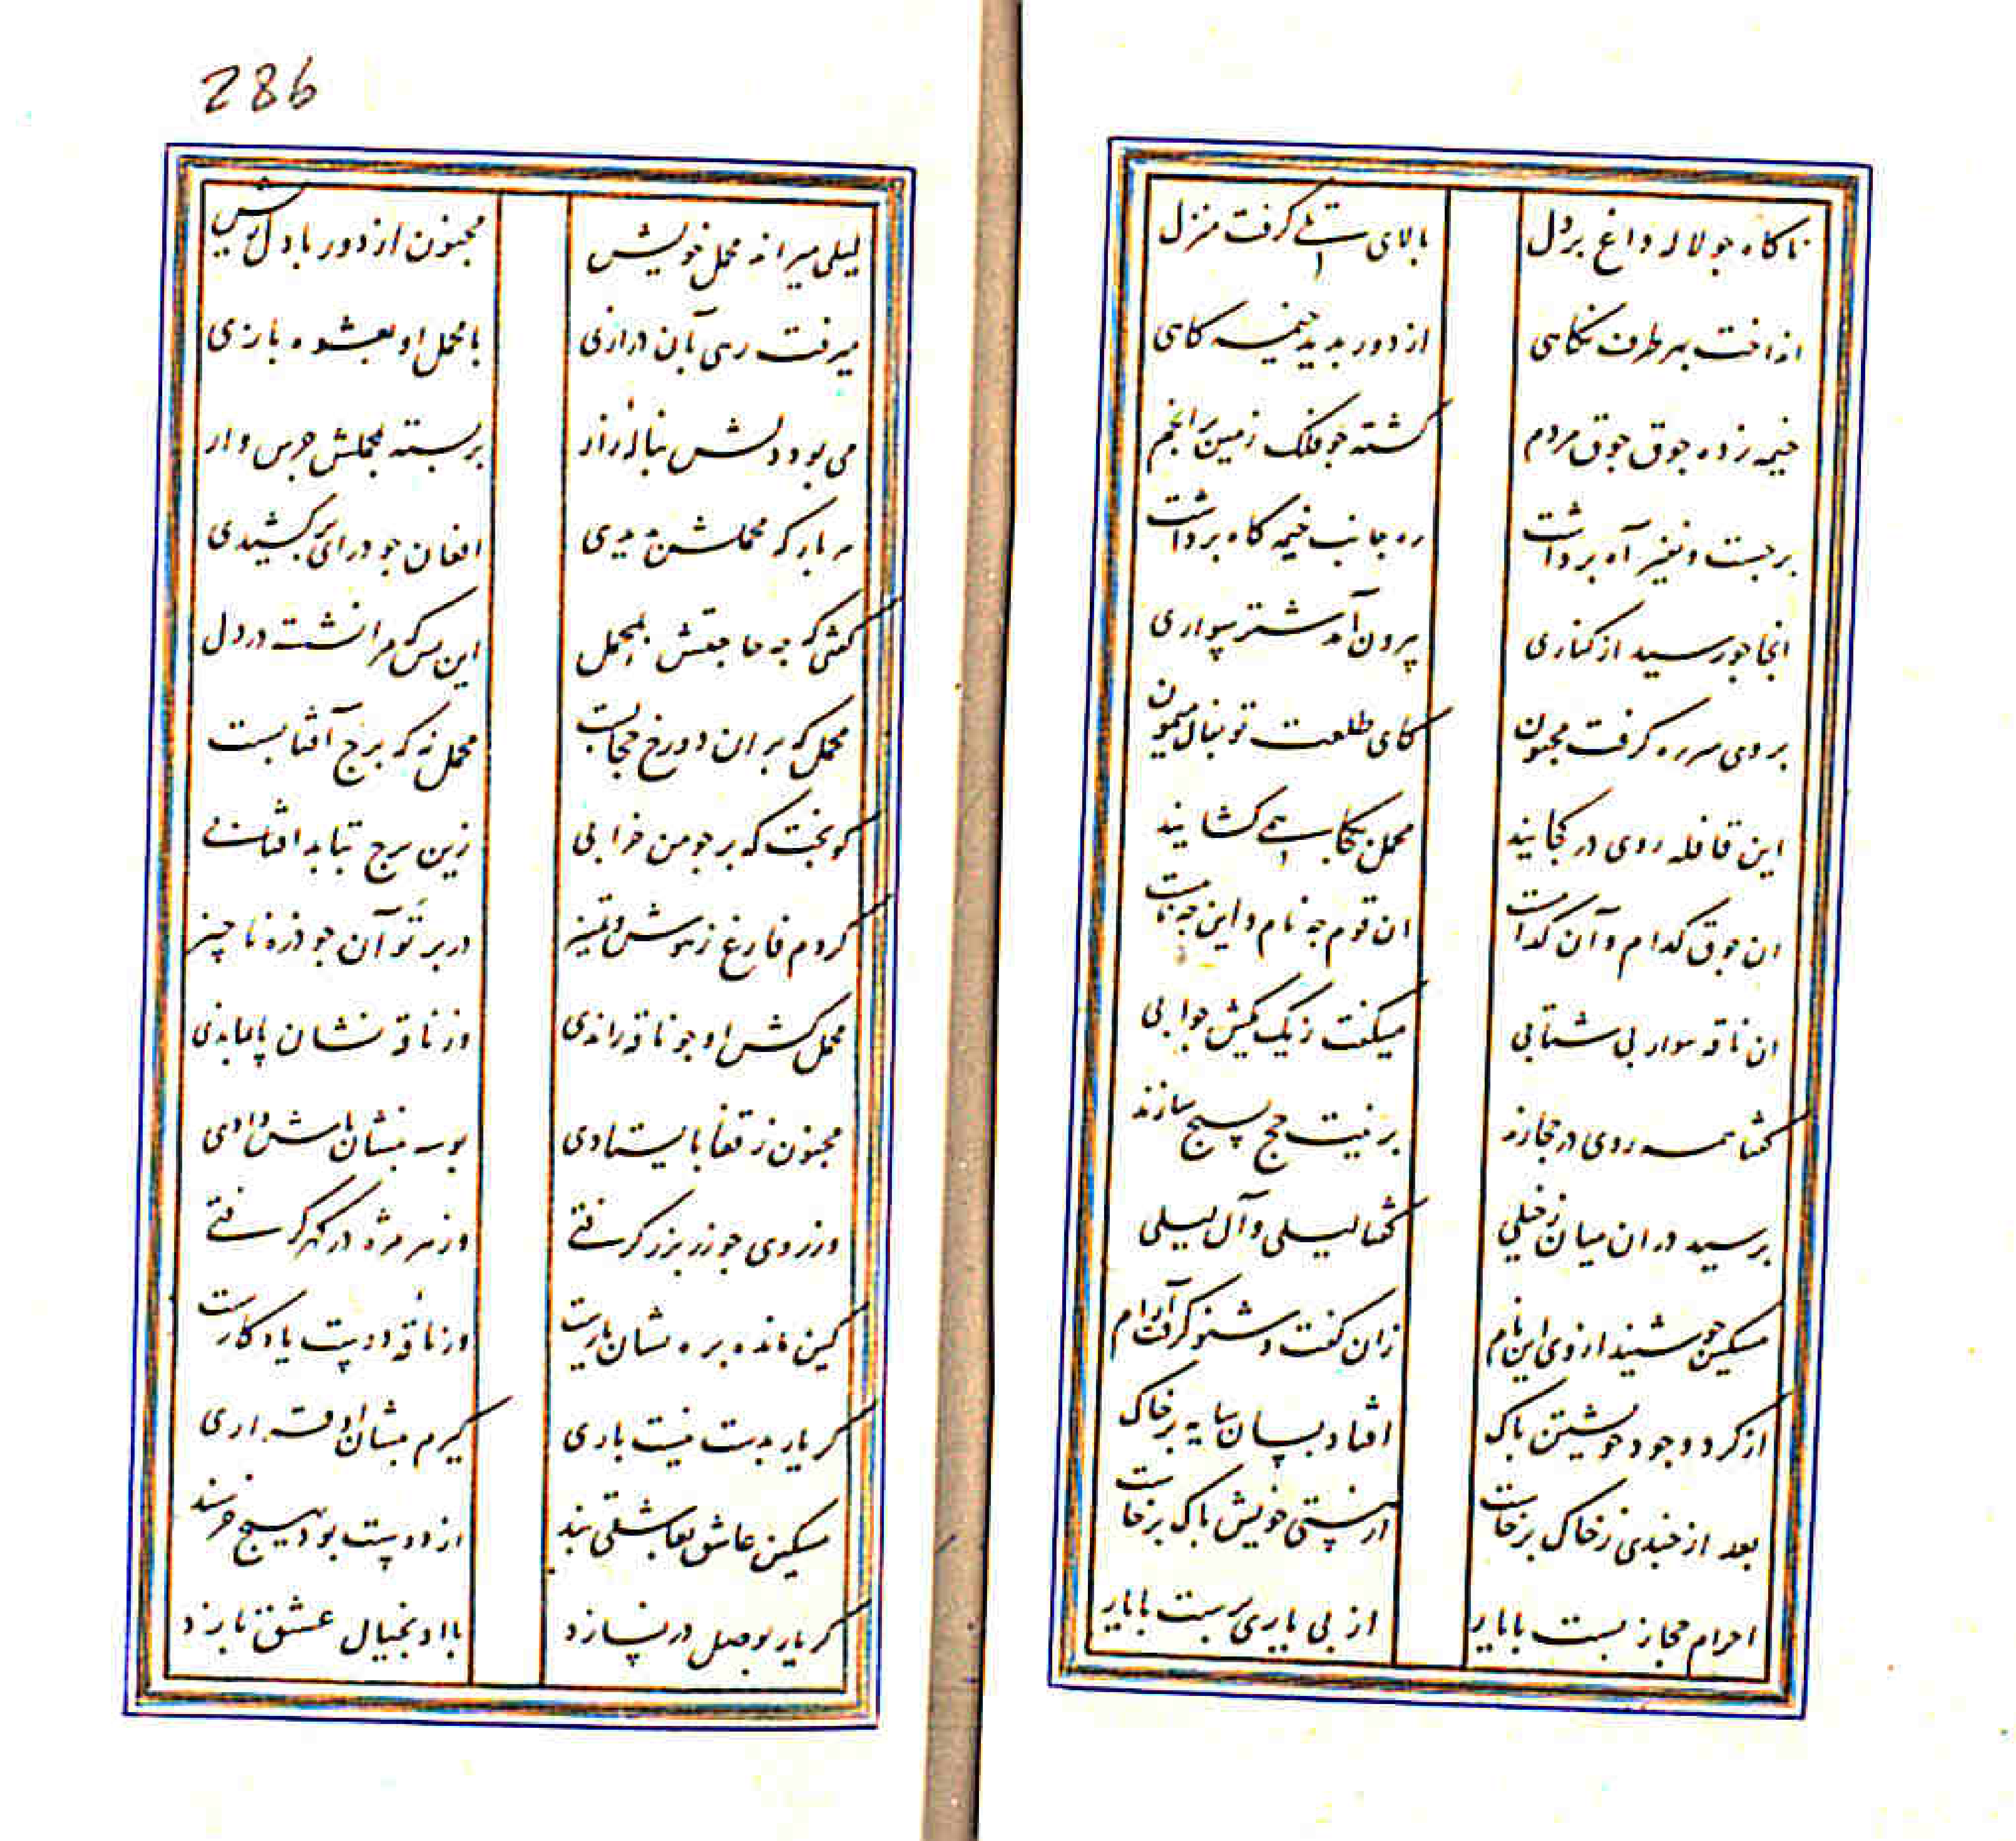 286
ناکاه جو لاله داغ بر دل بالای تلی گرفت منزل
انداخت بهر طرف نکاهی از دور بدید خیمه کاهی
خیمه زده جوق جوق مردم کشته جو فلک زمین پر انجم
برجست و نفیر آه برداشت ره جانب خیمه کاه برداشت
انجا جو رسید از کناری بیرون آمد شتر سواری
بر وی سر ره کرفت مجنون کای طلعت تو بفال میمون
این قافله روی در کجایند محمل بکجا همی کشایند
ان جوق کدام و آن کدامست ان قوم جه نام و این جه نامست
ان ناقه سوار بی شتابی میکفت زیک بیکش جوابی
کفتا همه روی در حجازند بر نیت حج بسیج سازند
برسید در ان میان زخیلی کفتا لیلی و آل لیلی
مسکین جو شنید از وی این نام زان کفت و شنو کرفت آرام
از کرد وجود خویشتن باک افتاد بسان سایه بر خاک
بعد از جندی ز خاک برخاست از هستی خویش باک برخاست
احرام حجاز بست با یار از بی یاری برست با یار
لیلی میراند محمل خویش مجنون از دور با دل ریش
میرفت رهی بآن درازی با محمل او بعشوه بازی
می بود دلش بناله زار بر بسته بمحملش جرس وار
هر بار که محملش بدیدی افغان جو درای بر کشیدی
کفتی که جه حاجتش بمحمل این بس که مرا نشسته در دل
محمل که بر ان دو رخ حجابست محمل نه که برج آفتابست
کو بخت که بر جو من خرابی زین برج بتابد افتابی
کردم فارغ ز هوش و تمییز در برتو آن جو ذره ناچیز
محمل کش او جو ناقه راندی وز ناقه نشان پا بماندی
مجنون ز قفا بایستادی بوسه بنشان پاش دادی
وز روی جو زر بزر کرفتی وز هر مژه در کهر کرفتی
کین مانده بره نشان یارست وز ناقه دوست یادکارست
کر یار بدست نیست باری کیرم بنشان او قراری
مسکین عاشق بعاشقی بند از دوست بود بهیچ خرسند
کر یار بوصل در نسازد با او بخیال عشق بازد